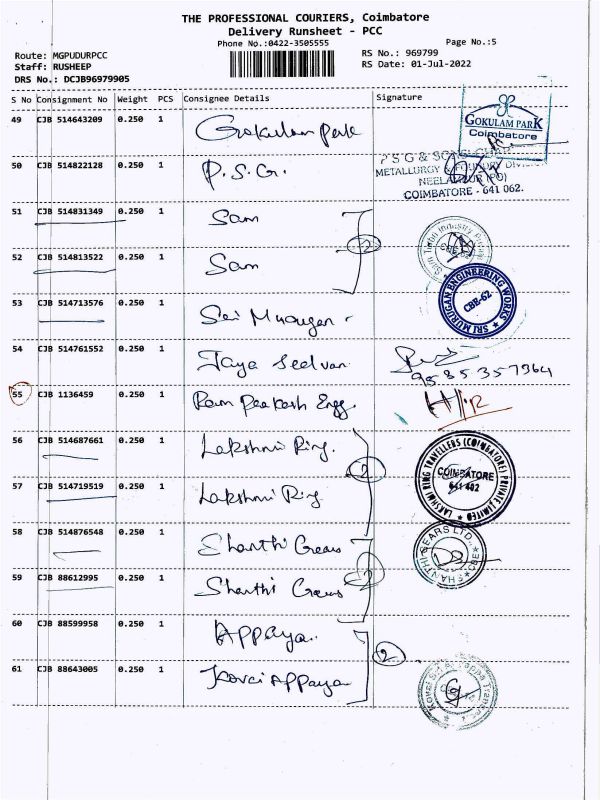 THE PROFESSIONAL COURIERS, Coimbatore
Delivery Runsheet - PCC
Phone No.:0422-3505555
Page No.:5
Route: MGPUDURPCC
RS No.: 969799
Staff: RUSHEEP
RS Date: 01-Jul-2022
DRS No.: DCJB96979905
S No Consignment No Weight PCS Consignee Details Signature
49 CJB 514643209 0.250 1 Gokulam Park
GOKULAM PARK
Coimbatore
50 CJB 514822128 0.250 1 P.S.G.
METALLURGY & FOUNDRY DIVISION
NEELAMBUR (PO)
COIMBATORE - 641 062.
51 CJB 514831349 0.250 1 Sam
52 CJB 514813522 0.250 1 Sam
2
53 CJB 514713576 0.250 1 Sai Murugan
SRI MURUGAN ENGINEERING WORKS
CBE-62
54 CJB 514761552 0.250 1 Jaya Seelvan
9585357964
55 CJB 1136459 0.250 1 Ram Prakash Engg
56 CJB 514687661 0.250 1 Lakshmi Ring.
57 CJB 514719519 0.250 1 Lakshmi Ring
2
LAKSHMI RING TRAVELLERS (COIMBATORE) PRIVATE LIMITED
COIMBATORE
641 402
58 CJB 514876548 0.250 1 Shanthi Gears
59 CJB 88612995 0.250 1 Shanthi Gears
2
SHANTHI GEARS LTD.
CBE
60 CJB 88599958 0.250 1 Appaya
61 CJB 88643005 0.250 1 Kovai Appaya
2